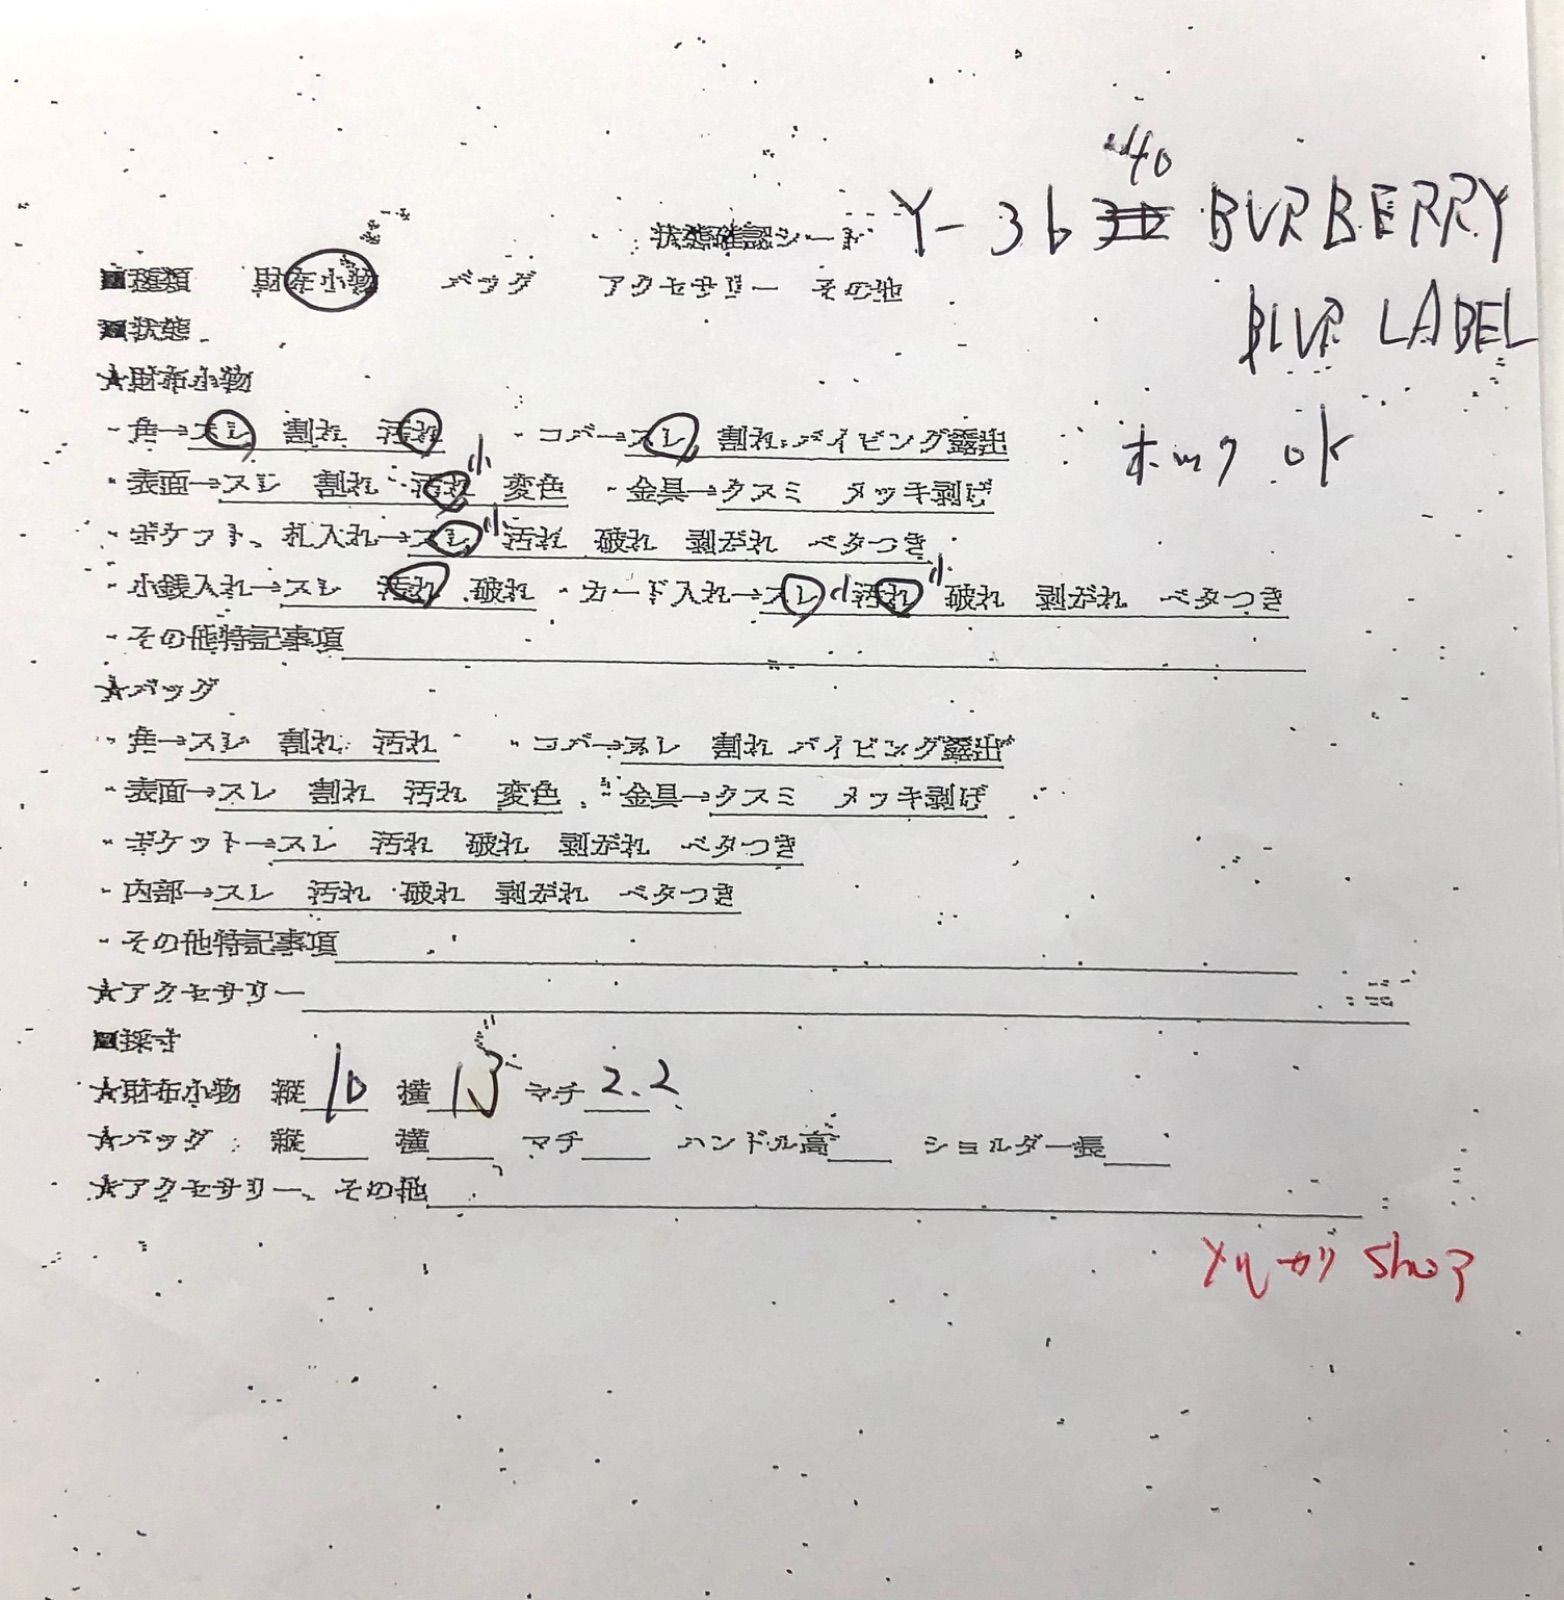 40
状態確認シート Y-36 BURBERRY
■種類 財布小物 バッグ アクセサリー その他
BLUE LABEL
■状態
★財布小物
・角→スレ 割れ 汚れ ・コバ→スレ 割れ パイピング露出
ホック OK
・表面→スレ 割れ 汚れ小 変色 ・金具→クスミ メッキ剥げ
・ポケット、札入れ→スレ小 汚れ 破れ 剥がれ ベタつき
・小銭入れ→スレ 汚れ 破れ ・カード入れ→スレ小 汚れ小 破れ 剥がれ ベタつき
・その他特記事項
★バッグ
・角→スレ 割れ 汚れ ・コバ→スレ 割れ パイピング露出
・表面→スレ 割れ 汚れ 変色 ・金具→クスミ メッキ剥げ
・ポケット→スレ 汚れ 破れ 剥がれ ベタつき
・内部→スレ 汚れ 破れ 剥がれ ベタつき
・その他特記事項
★アクセサリー
■採寸
★財布小物 縦10 横13 マチ2.2
★バッグ 縦 横 マチ ハンドル高 ショルダー長
★アクセサリー、その他
メルカリ Shop